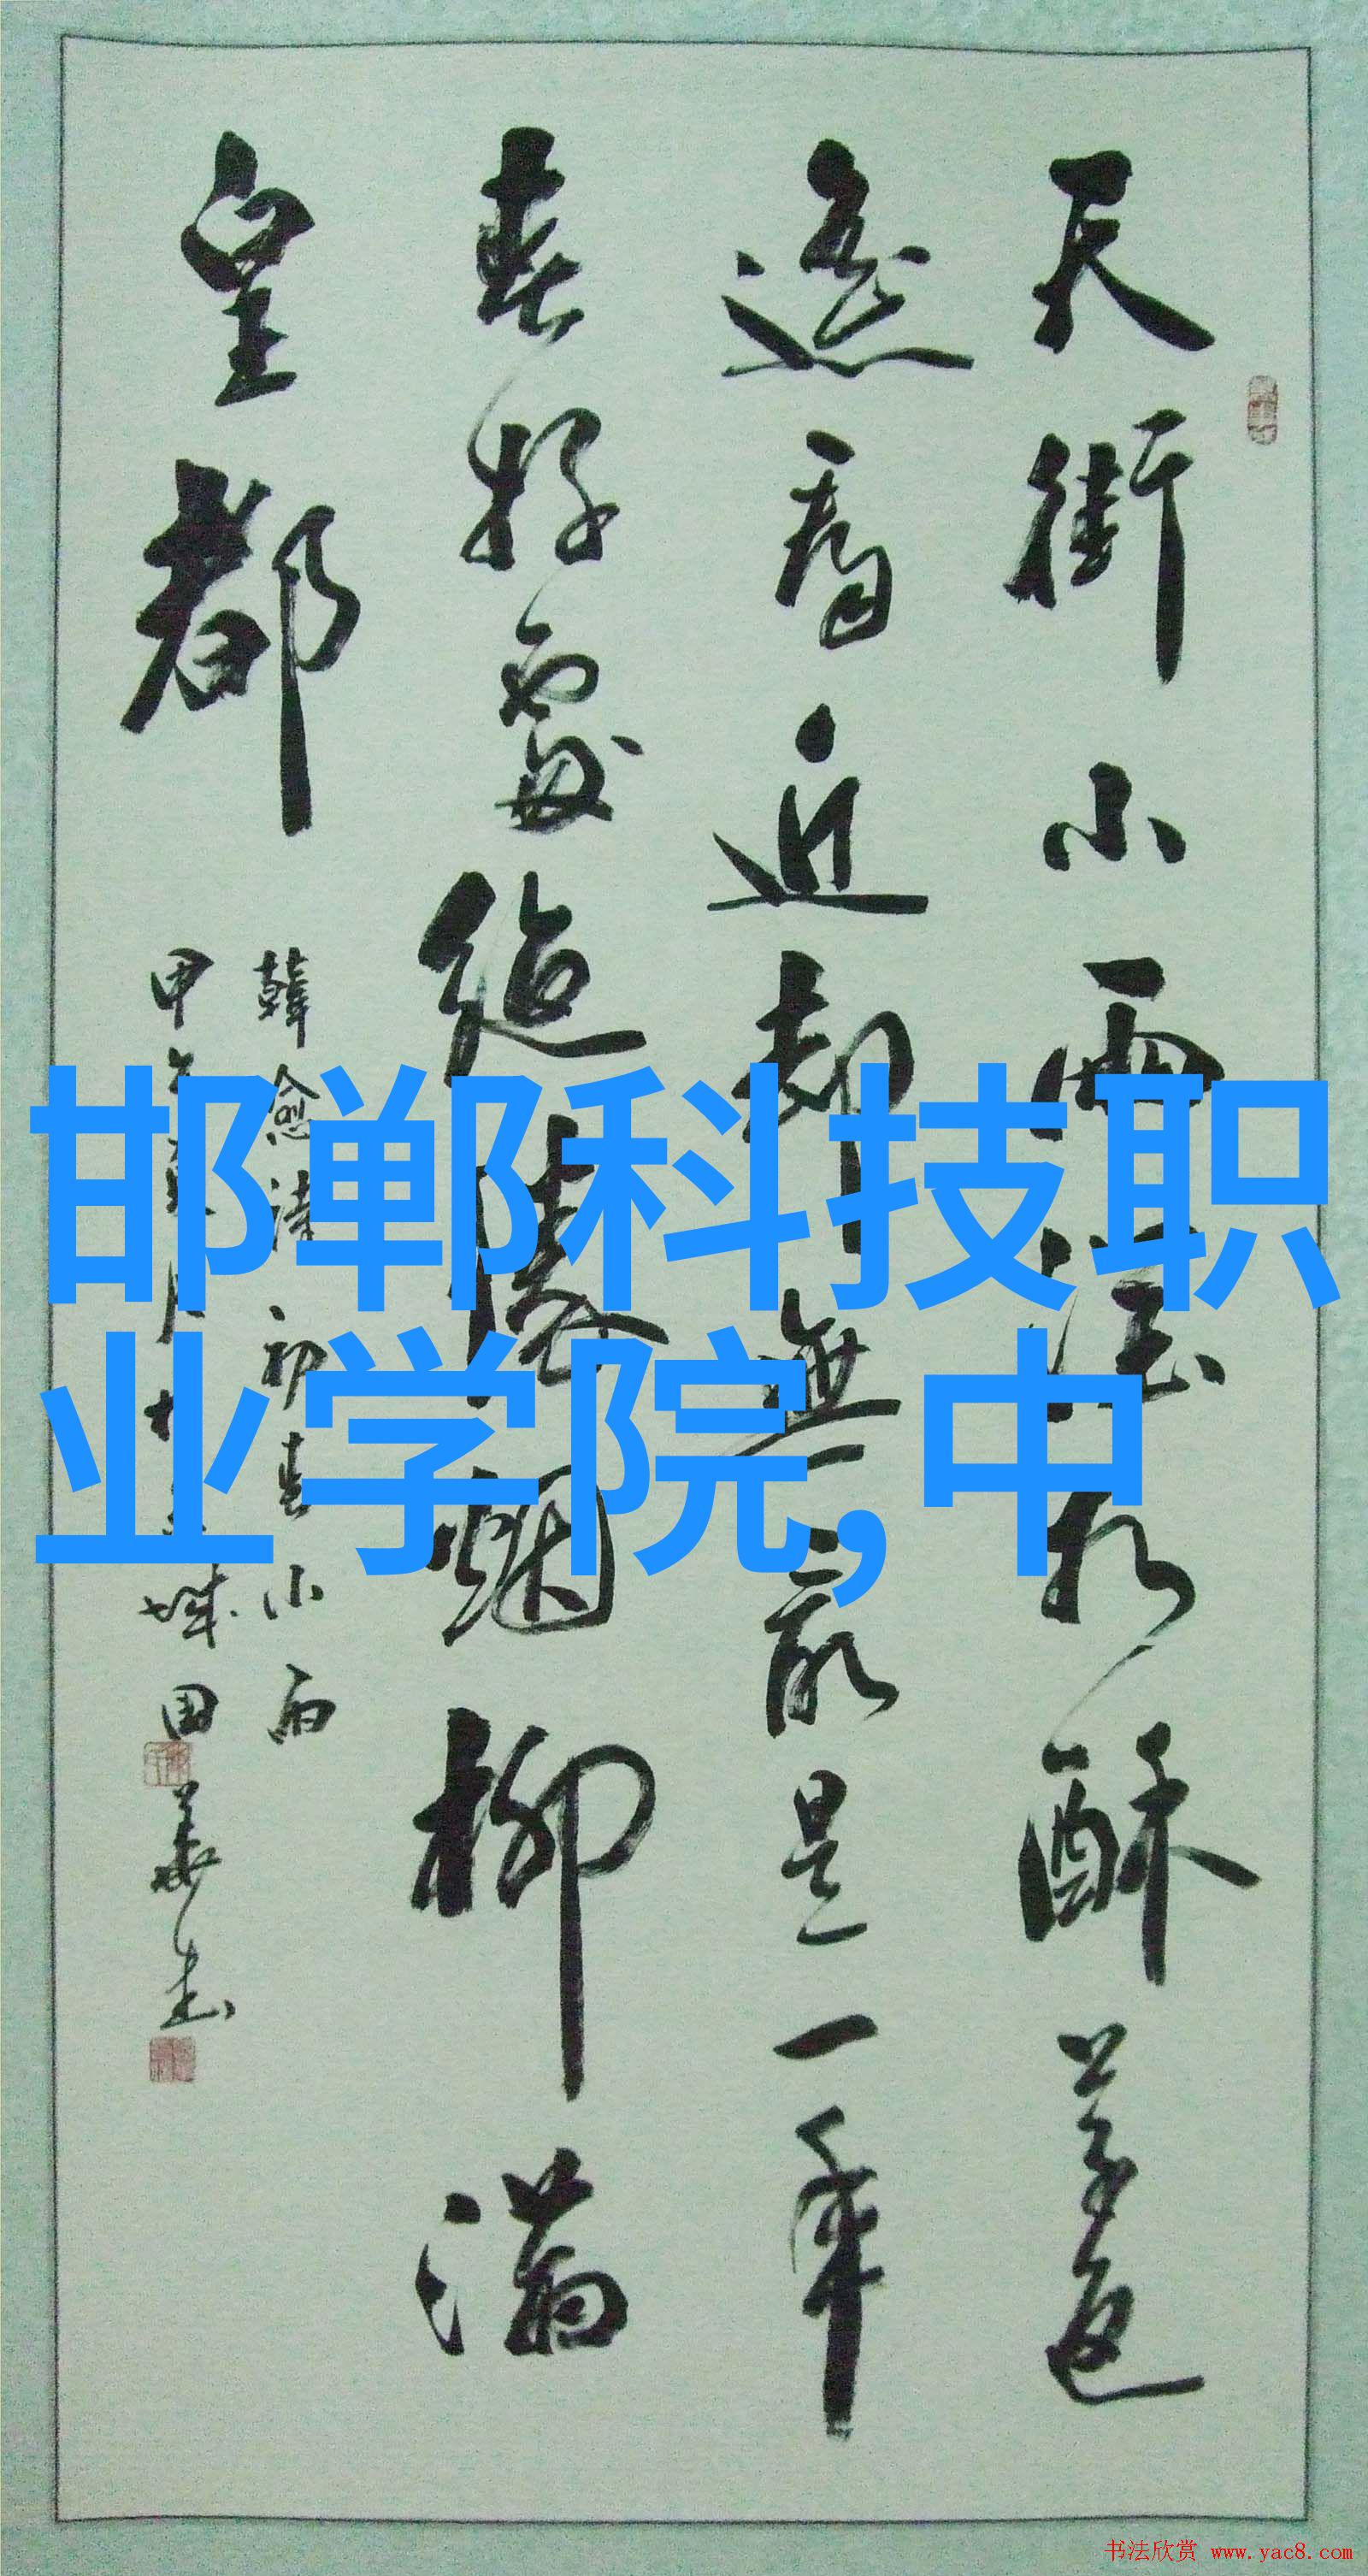 天街小雨潤如酥草色
遥看近却無最是一年
春好處絶勝烟柳滿
皇都
韓愈詩初春小雨
甲午年月城国華書
邯郸科技职
业学院,中
书法欣赏 www.yac8.com